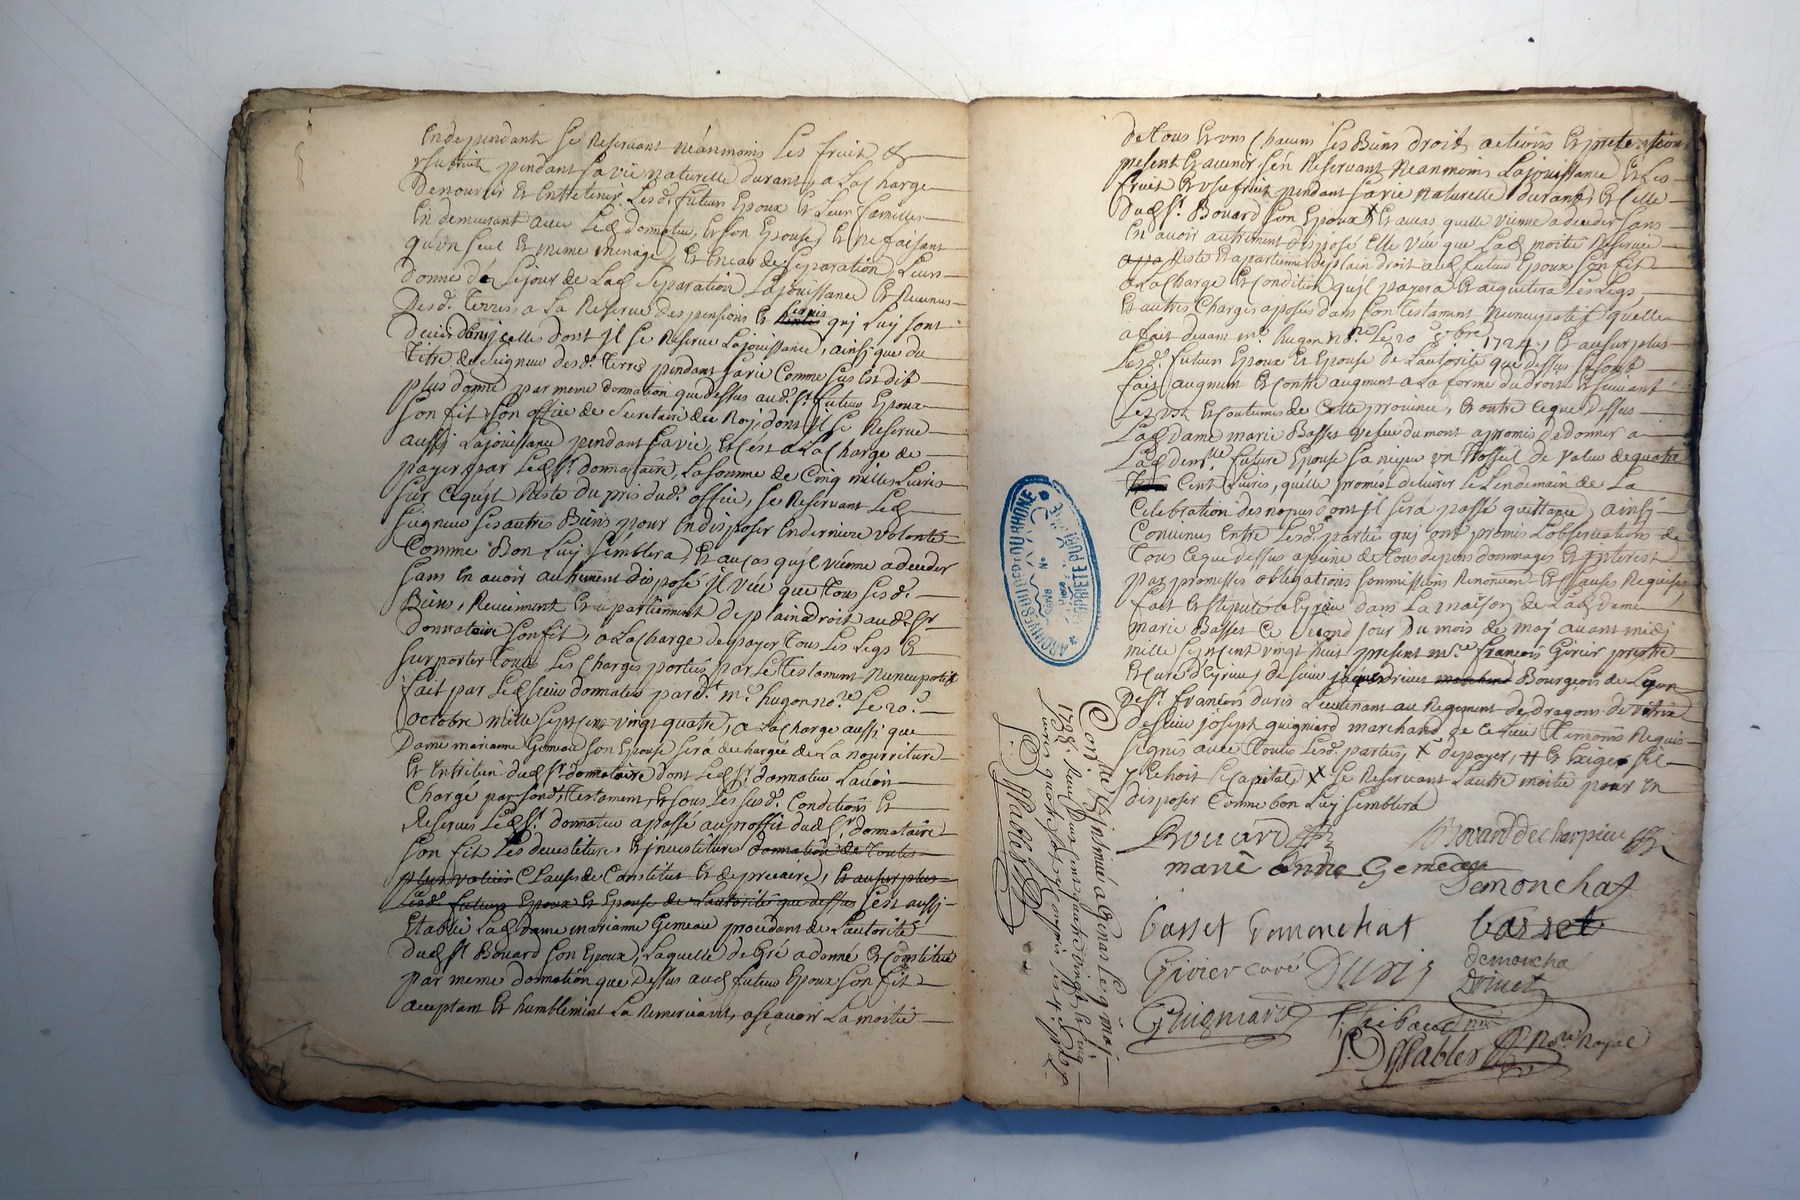 En dependant se Reservant néanmoins Les fruit &
usufruit pendant sa vie naturelle durant, a La Charge
De nourrir Et Entretenir Lesd. futurs Epoux Et Leur familles
En demeurant avec Led donnateur, Et son Epouse, Et ne faisant
qu'un seul Et meme menage, Et En cas de separation, Leur
donne dés Lejour de Lad separation Lajouissance Et Revenus
Desd. Terres a La Reserve des pensions Et servis qui Luy sont
deus dans jcelles dont jl se Reserve Lajouissance, ainsi que du
Titre de seigneur desd. Terres pendant sa vie Comme sus Est dit
plus donne par meme donnation que dessus aud. Sr. futur Epoux
son fit son office de secretaire du Roj, dont jl se Reserve
aussj Lajouissance pendant sa vie, Et c'est a La Charge de
payer par Led Sr. donnataire La somme de Cinq milles Livres
sur Cequjl Reste du pris dud. office, se Reservant Led
seigneur ses autres Biens pour En disposer En derniere volonté
Comme Bon Luy semblera, Et au cas qu'jl vienne a deceder
sans En avoir autrement disposé jl veut que tous sesd.
Biens, Reviennent Et apartiennent de plain droit aud. Sr
donnataire son fit, a La Charge de payer Tous Les Legs Et
suporter Toutes Les Charges portées par Le Testament Nuncupatif
fait par Led sieur donnateur pard.t me. hugon no.re Le 20.e
octobre mille septcent vingt quatre, a La Charge aussi que
Dame marianne Gemeau son Epouse sera dechargée de La nourriture
Et Entretien dud Sr. donnataire dont Led Sr. donnateur Lavoit
Chargé par sond. Testament, Et sous Les susd. Conditions Et
Reserves Led Sr. donnateur a passé au proffit dud Sr. donnataire
son fit Les devestitures Et jnvestitures donnation de Toutes
plus valeüe Clauses de Constitut Et de precaire, Et au surplus
Lesd. futurs Epoux Et Epouse de Lautorité que dessus s'est aussi
Etablie Lad Dame marianne Gemeau procedant de Lautorité
dud Sr Bouard son Epoux, Laquelle de gré a donné Et Constitué
par meme donnation que Dessus aud futur Epoux son fit
aceptant Et humblement La Remerciant, asçavoir La moitié
de Tous Et uns Chacuns ses Biens droit, actions Et pretentions
present Et avenir s'en Reservant Neanmoins Lajouissance Et Les
fruit Et usufruit pendant sa vie Naturelle durant, Et Celle
Dud Sr. Bouard son Epoux X Et au cas quelle vienne a deceder sans
En avoir autrement disposé Elle veut que Lad moitié Reservée
appa Reste Et apartienne de plain droit aud futur Epoux son fit
a La Charge Et condition qujl payera Et acquitera Les Legs,
Et autres Charges aposées dans son Testament Nuncupatif quelle
a fait devant me. hugon no.re Le 20 8bre 1724, Et au surplus
Lesd. futurs Epoux Et Epouse de Lautorité que dessus se sont
fait augment Et Contre augment a La forme du droit Et suivant
Les us Et Coutumes de Cette province, Et outre ceque Dessus
Lad Dame marie Basset veuve dumont a promis de donner a
Lad Demlle future Epouse sa niepce un Trosseil de valeur de quatre
Cent Livres, quelle promis delivrer le Lendemain de La
Celebration des nopces dont jl sera passé quittance, ainsi
Convenus Entre Lesd. parties qui ont promis Lobservation de
Tous ceque dessus a peine de Tous depens dommages Et jnterest
par promesses obligations soumissions Renonçiõn Et Clauses Requises
fait Et stipulé a Eyrieu dans La maison de Lad Dame
marie Basset Ce second jour Du mois de maj avant midj
mille septcent vingt huit present mre françois Girier prestre
Et Curé d'Eyrieu, de sieur jaques drivet marchand Bourgeois de Lyon
De Sr. françois duris Lieutenant au Regiment de dragons de vitrix
de sieur joseph guigniard marchand de ce Lieu Temoins Requis
signés avec Toutes Lesd. parties, X de payer, # Et Exiger sil
y Echoit Capital X se Reservant Lautre moitié pour En
disposer Comme bon Luy semblera
Bouard
Bouard de charpieu
marie Anne Gemeau
Demonchat
Basset Demonchat
basset
Girier curé
Duris
demoncha
Drivet
Guigniard
Thibaud
P. Dessables Nore. Royal
ARCHIVES DU DEPT DU RHONE
PROPRIETE PUBLIQUE
Contrlé & jnsinué a Genas Le 9 maj
1728. Reçu
P. Dessables